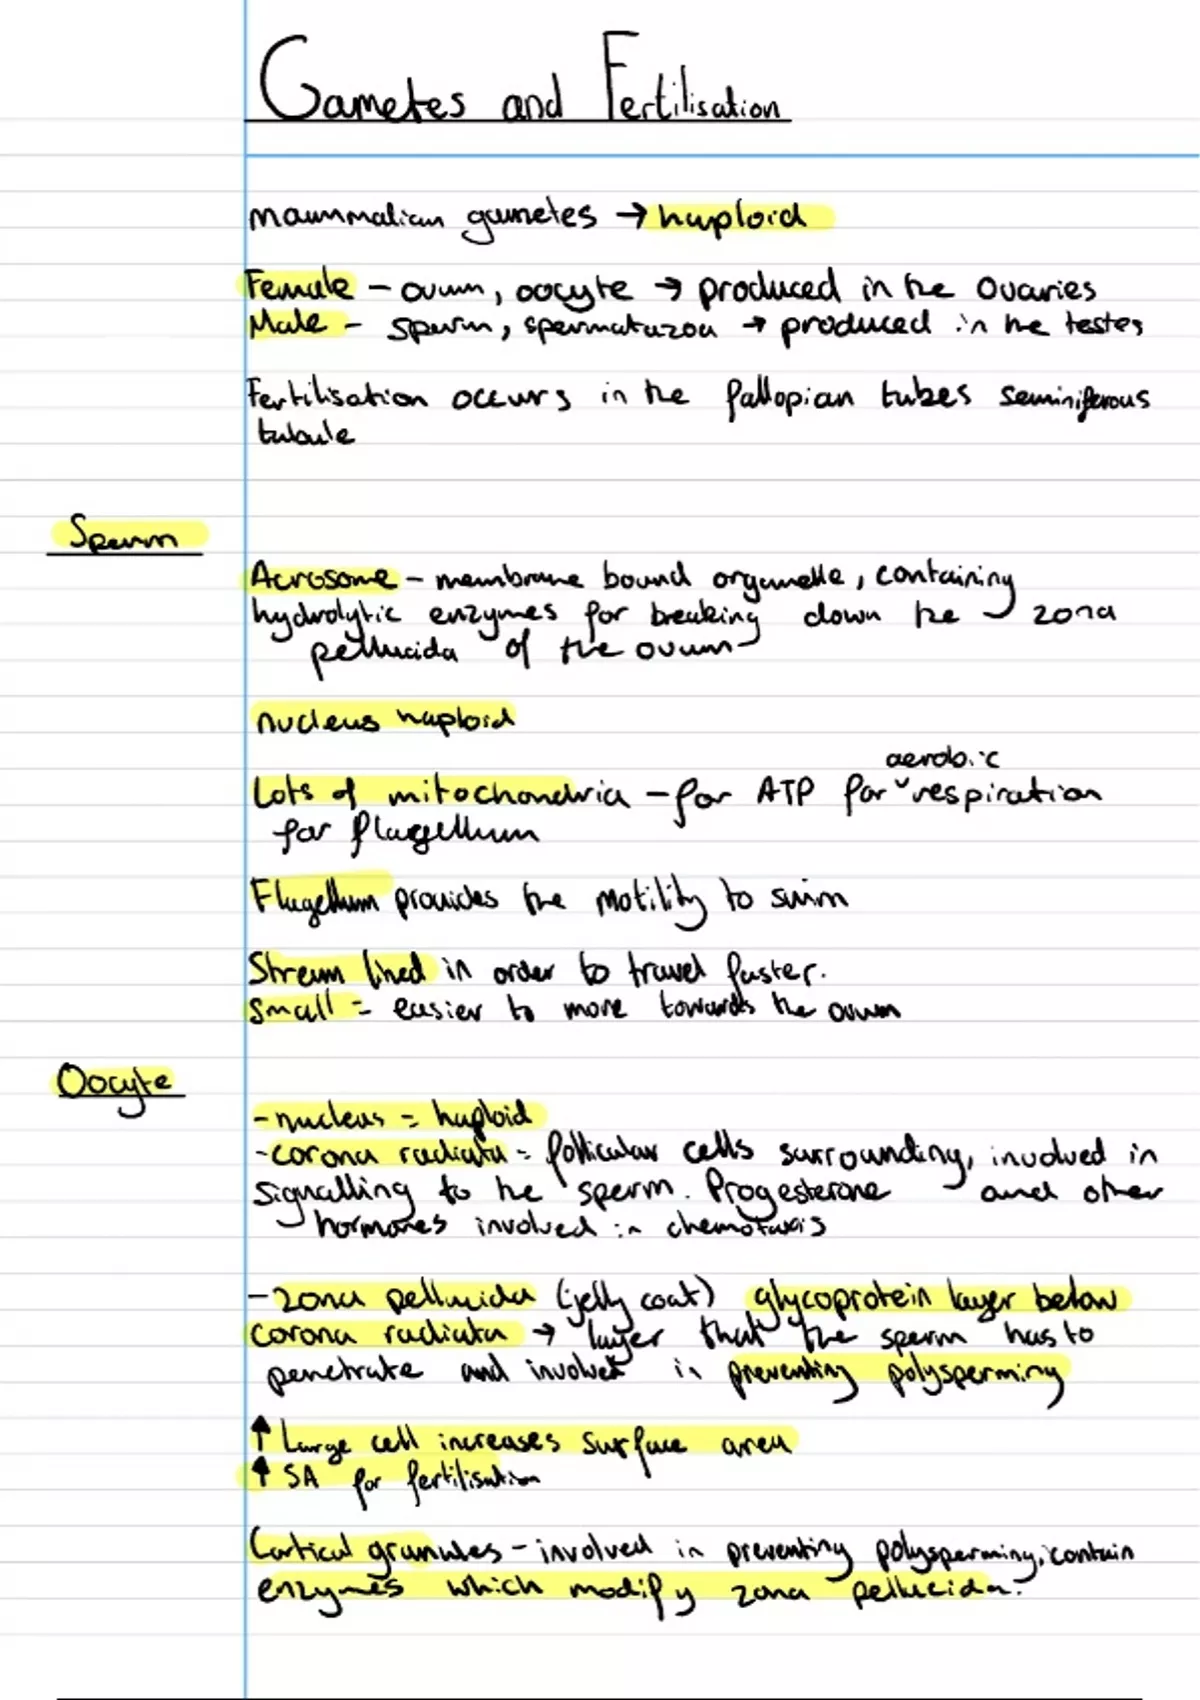 Gametes and Fertilisation
mammalian gametes → haploid
Female – ovum, oocyte → produced in the Ovaries
Male – sperm, spermatozoa → produced in the testes
Fertilisation occurs in the fallopian tubes seminiferous
tubule
Sperm
Acrosome – membrane bound organelle, containing
hydrolytic enzymes for breaking down the zona
pellucida of the ovum
nucleus haploid
aerobic
Lots of mitochondria – for ATP for ˅ respiration
for flagellum
Flagellum provides the motility to swim
Stream lined in order to travel faster.
Small = easier to move towards the ovum
Oocyte
- nucleus = haploid
- corona radiata = follicular cells surrounding, involved in
signalling to the sperm. Progesterone and other
hormones involved in chemotaxis
- zona pellucida (jelly coat) glycoprotein layer below
corona radiata → layer that the sperm has to
penetrate and involved in preventing polysperming
↑ Large cell increases surface area
↑ SA for fertilisation
Cortical granules – involved in preventing polysperming, contain
enzymes which modify zona pellucida.